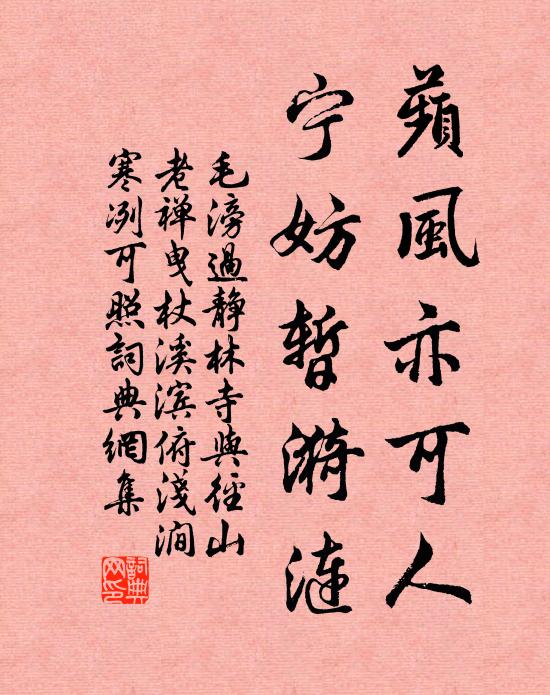 蘋風亦可人
宁妨暫漪漣
毛滂過靜林寺與徑山
老禅曳杖溪滨俯淺澗
寒冽可照詞典網集
詞典网印